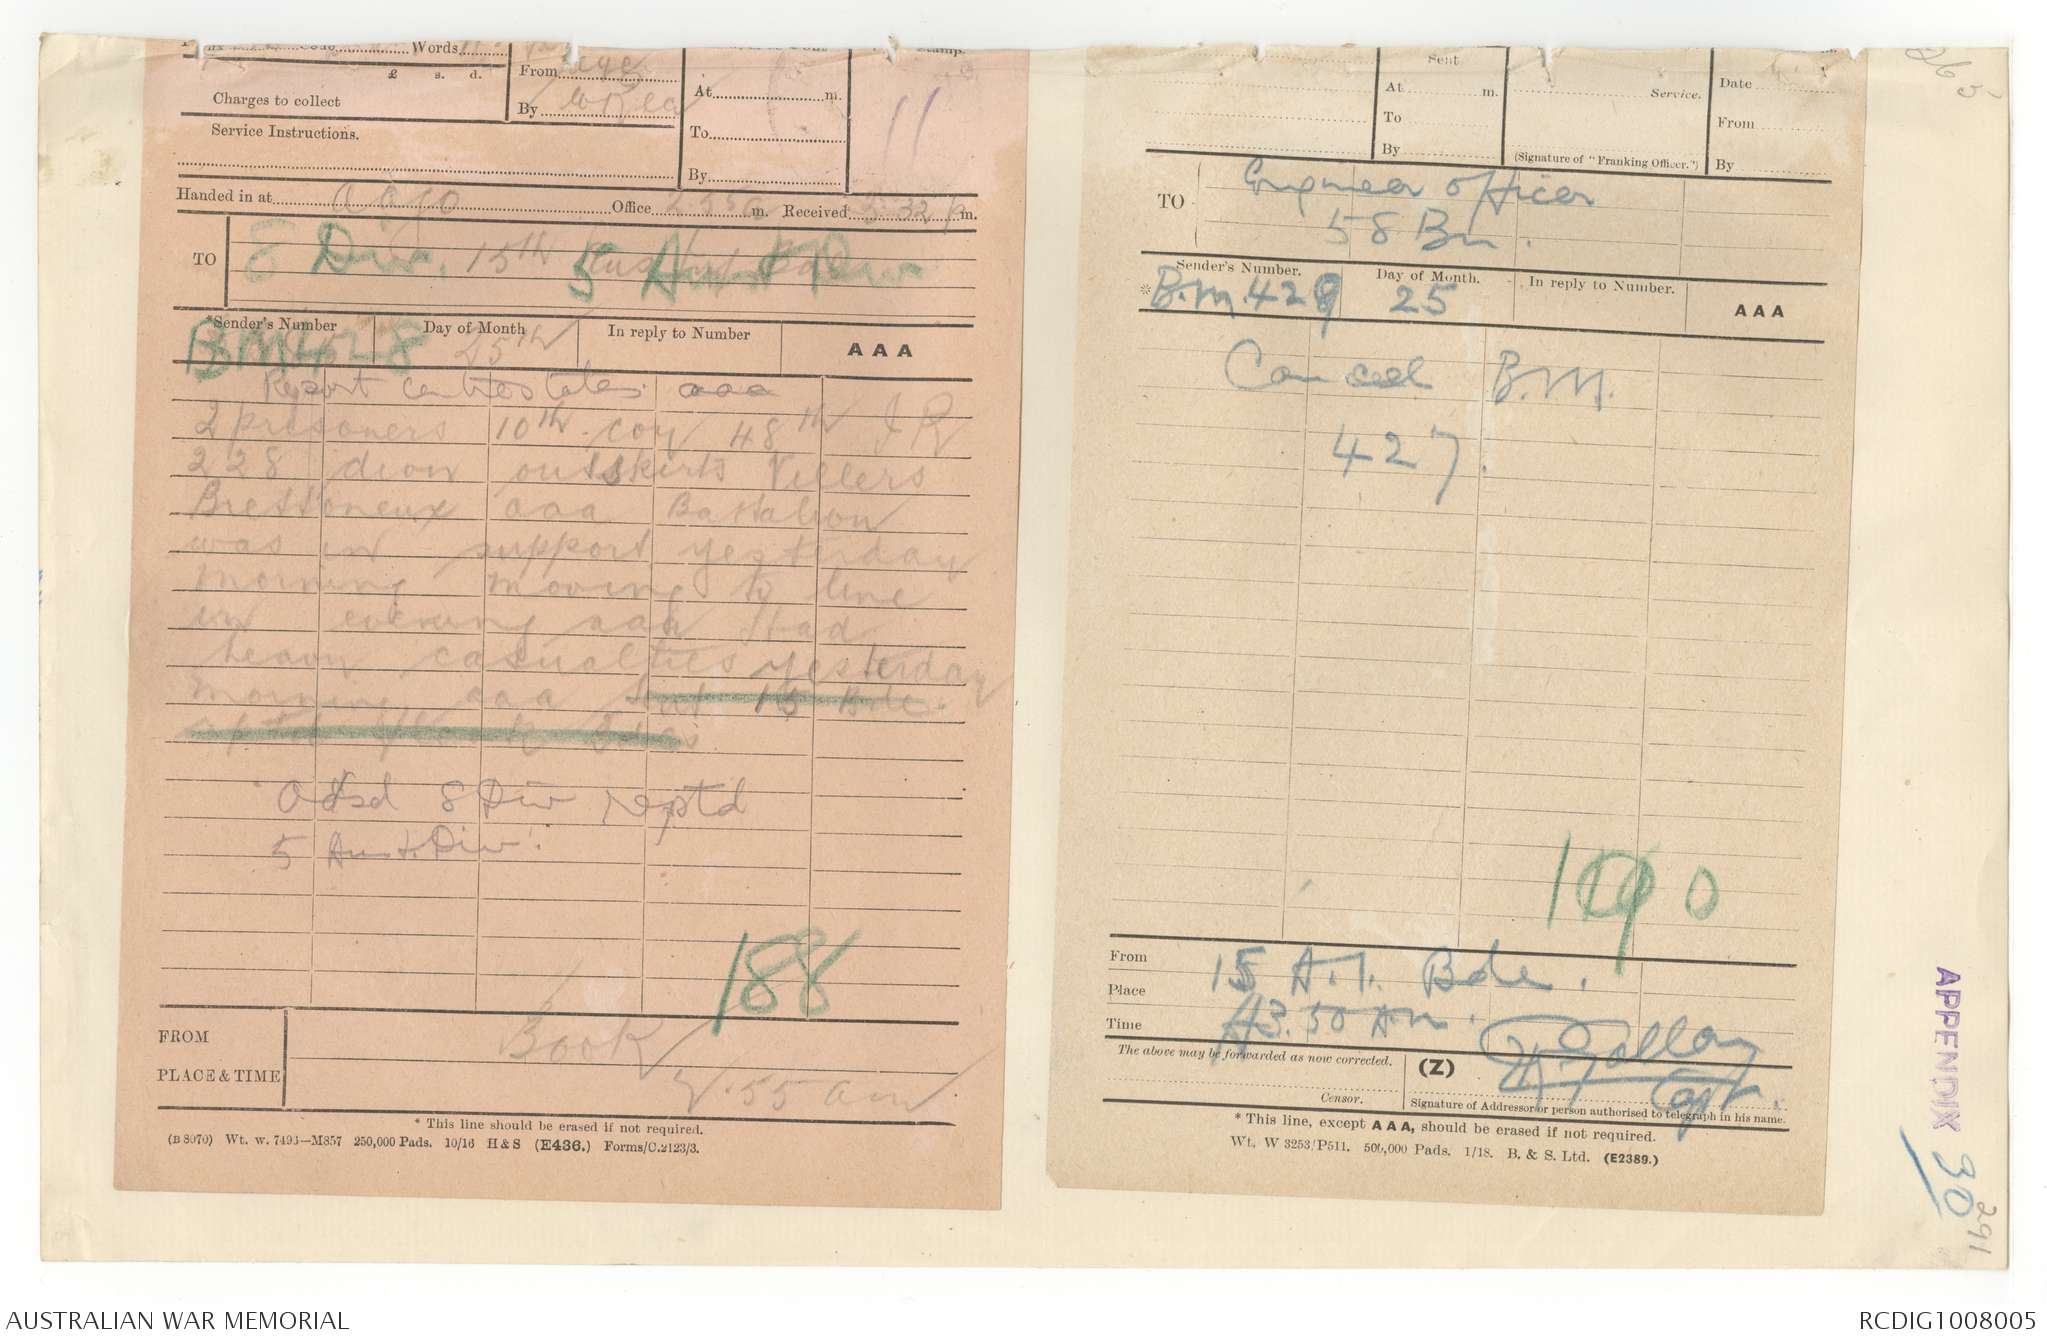 Words
£ s. d.
Charges to collect
Service Instructions.
From
By
At m.
To
By
Stamp.
11
Handed in at Office 2.55a m. Received 3.32 p m.
TO 8 Div. 15th 5 Aust Div
*Sender's Number Day of Month In reply to Number AAA
BM428 25th
Report centre states aaa
2 prisoners 10th coy 48th I R
228 dion outskirts Villers
Brettoneux aaa Battalion
was in support yesterday
morning moving to line
in evening aaa Had
heavy casualties yesterday
morning aaa 15 Bde.
Adsd 8 Div reptd
5 Aust. Div.
188
FROM Book
PLACE & TIME 2.55 am
* This line should be erased if not required.
(B 8070) Wt. w. 7493—M857 250,000 Pads. 10/16 H & S (E436.) Forms/C.2123/3.
Sent
At m.
To
By
Service.
(Signature of "Franking Officer.")
Date
From
By
TO Engineer officer
58 Bn.
Sender's Number. Day of Month. In reply to Number. AAA
* B.M. 429 25
Cancel B.M.
427.
190
From 15 A.I. Bde.
Place
Time 3.50 Am.
The above may be forwarded as now corrected. (Z)
Capt
Censor. Signature of Addressor or person authorised to telegraph in his name.
* This line, except AAA, should be erased if not required.
Wt. W 3253/P511. 500,000 Pads. 1/18. B. & S. Ltd. (E2389.)
APPENDIX 30
291
AUSTRALIAN WAR MEMORIAL
RCDIG1008005